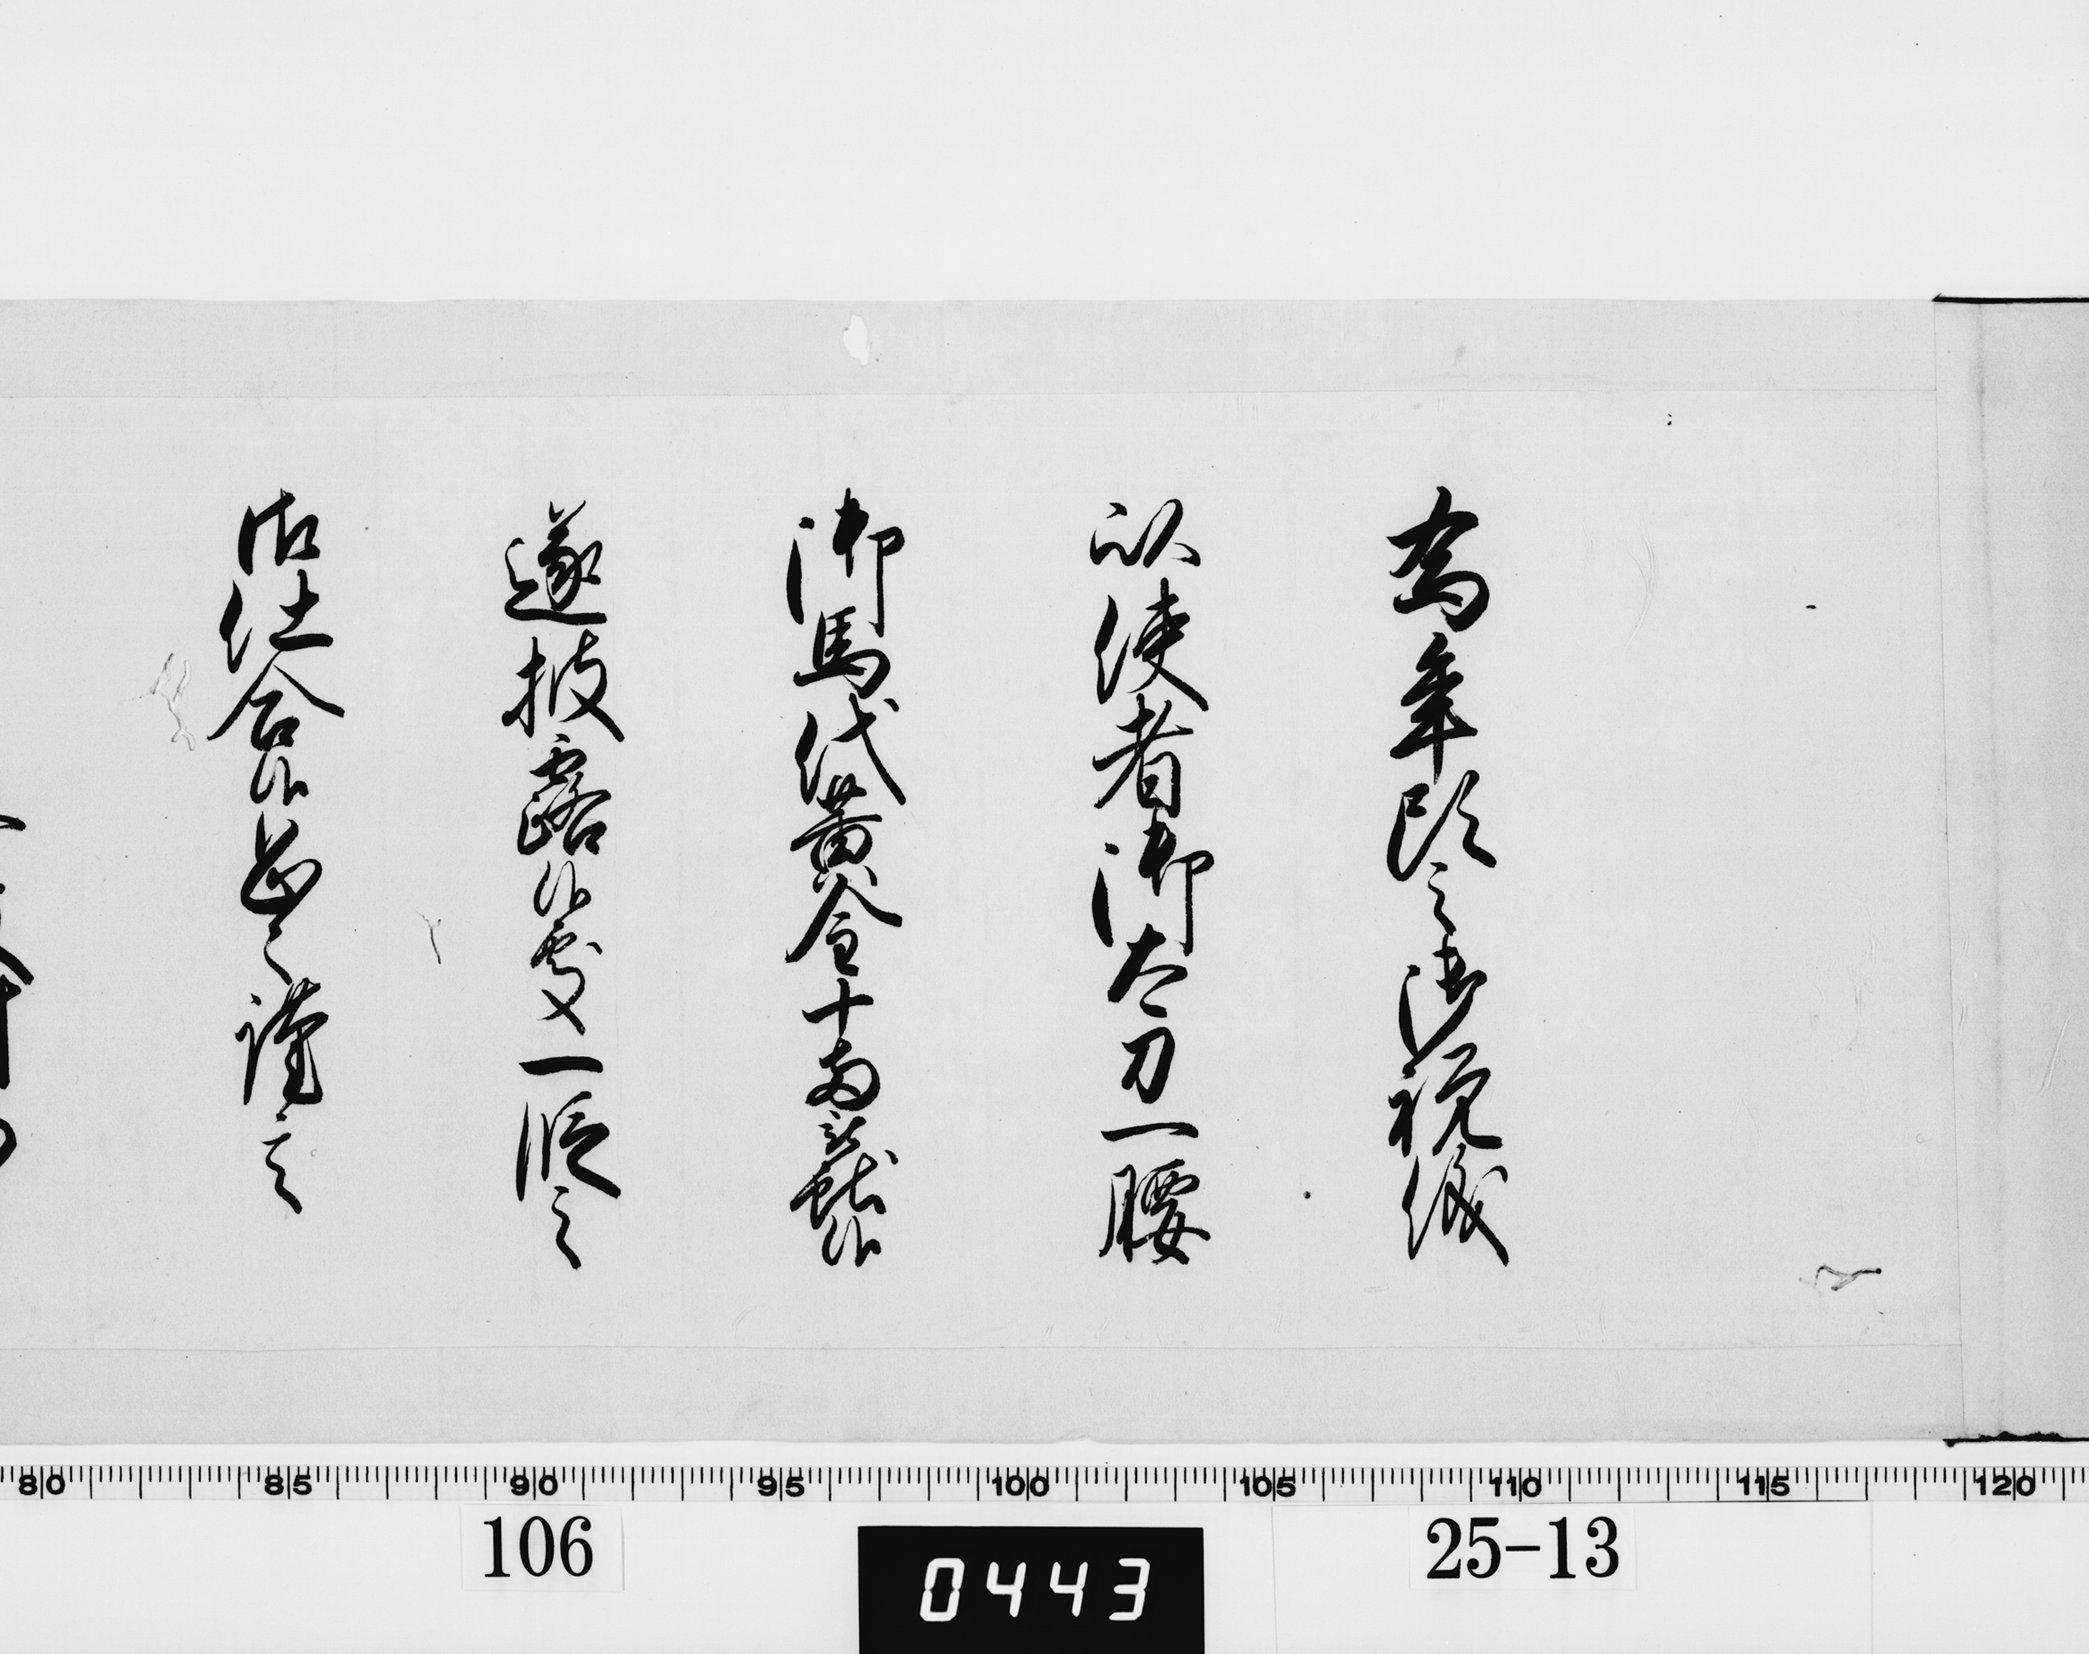 為年頭之御祝儀
以使者御太刀一腰
御馬代黄金十両献候
遂披露候処一段之
御仕合候恐々謹言
80 85 90 95 100 105 110 115 120
106
0443
25-13